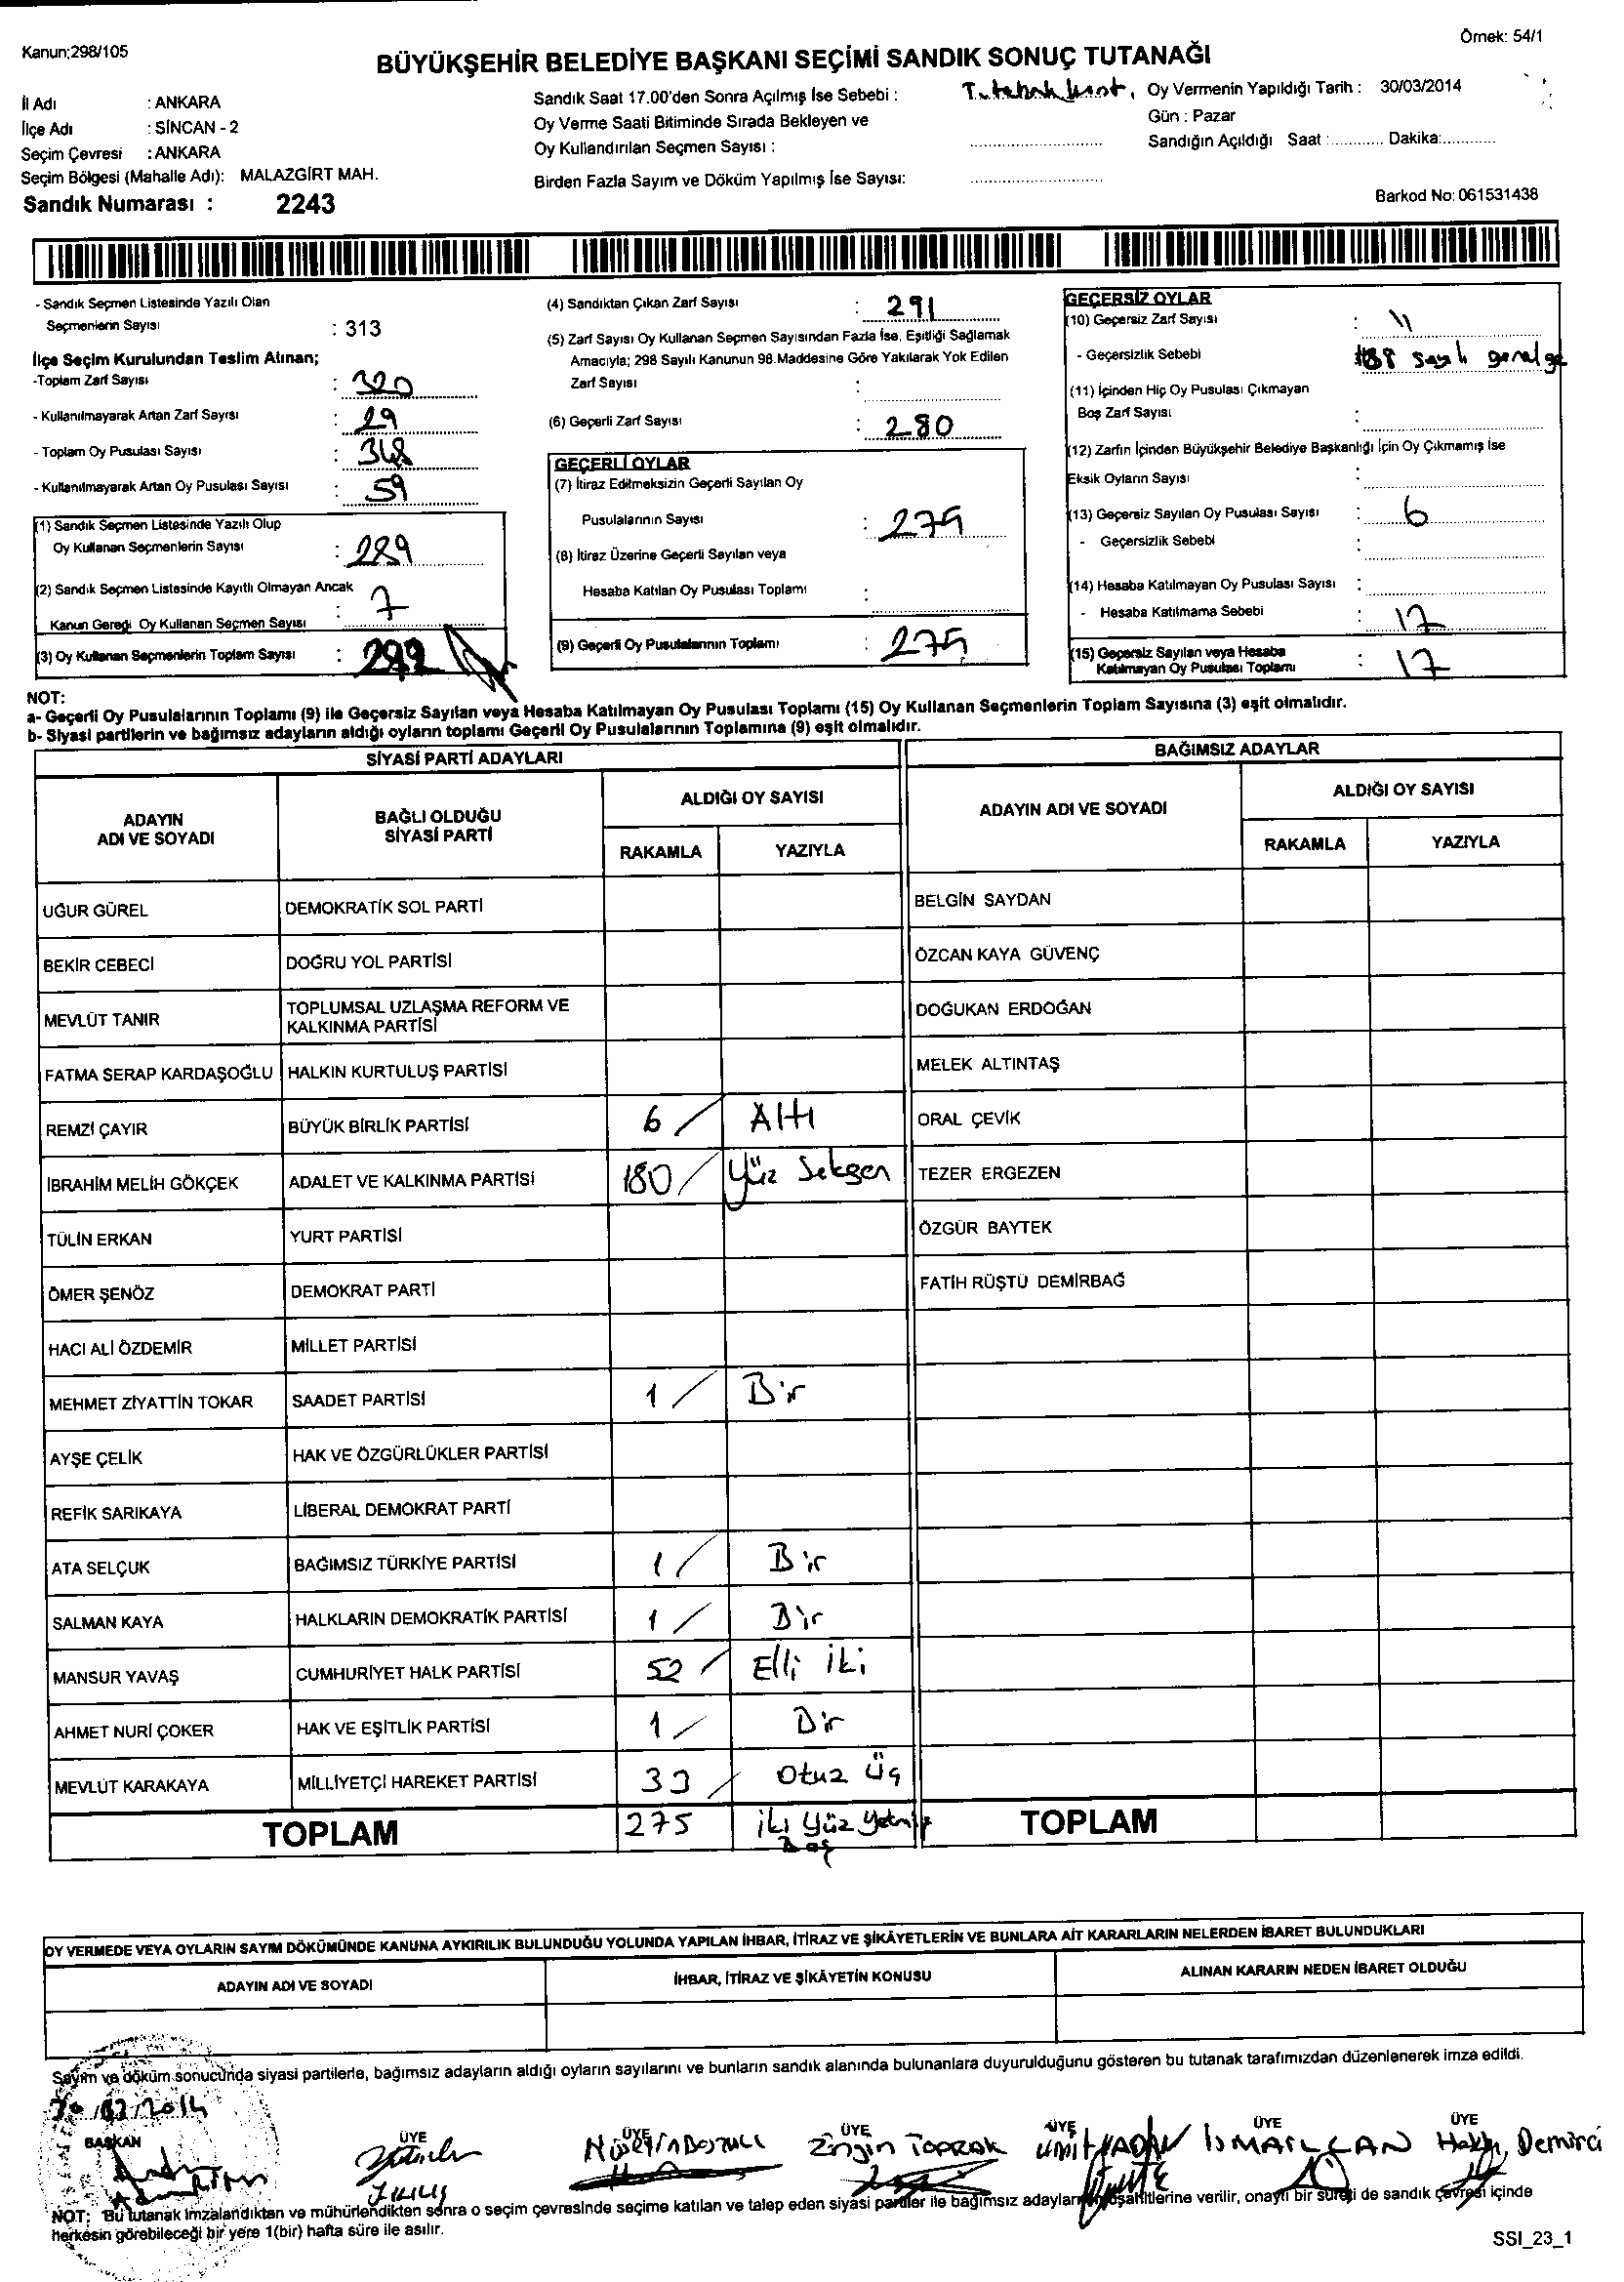 Kanun;298/105
Örnek: 54/1
BÜYÜKŞEHİR BELEDİYE BAŞKANI SEÇİMİ SANDIK SONUÇ TUTANAĞI
İl Adı : ANKARA
İlçe Adı : SİNCAN - 2
Seçim Çevresi : ANKARA
Seçim Bölgesi (Mahalle Adı): MALAZGİRT MAH.
Sandık Numarası : 2243
Sandık Saat 17.00'den Sonra Açılmış İse Sebebi :
Oy Verme Saati Bitiminde Sırada Bekleyen ve
Oy Kullandırılan Seçmen Sayısı :
Birden Fazla Sayım ve Döküm Yapılmış İse Sayısı:
Oy Vermenin Yapıldığı Tarih : 30/03/2014
Gün : Pazar
Sandığın Açıldığı Saat :............ Dakika:............
Barkod No: 061531438
- Sandık Seçmen Listesinde Yazılı Olan
Seçmenlerin Sayısı : 313
İlçe Seçim Kurulundan Teslim Alınan;
-Toplam Zarf Sayısı : 320
- Kullanılmayarak Artan Zarf Sayısı : 29
- Toplam Oy Pusulası Sayısı : 348
- Kullanılmayarak Artan Oy Pusulası Sayısı : 59
(1) Sandık Seçmen Listesinde Yazılı Olup
Oy Kullanan Seçmenlerin Sayısı : 289
(2) Sandık Seçmen Listesinde Kayıtlı Olmayan Ancak
Kanun Gereği Oy Kullanan Seçmen Sayısı : 7
(3) Oy Kullanan Seçmenlerin Toplam Sayısı :
(4) Sandıktan Çıkan Zarf Sayısı : 291
(5) Zarf Sayısı Oy Kullanan Seçmen Sayısından Fazla İse, Eşitliği Sağlamak
Amacıyla; 298 Sayılı Kanunun 98.Maddesine Göre Yakılarak Yok Edilen
Zarf Sayısı :
(6) Geçerli Zarf Sayısı : 280
GEÇERLİ OYLAR
(7) İtiraz Edilmeksizin Geçerli Sayılan Oy
Pusulalarının Sayısı : 275
(8) İtiraz Üzerine Geçerli Sayılan veya
Hesaba Katılan Oy Pusulası Toplamı :
(9) Geçerli Oy Pusulalarının Toplamı : 275
GEÇERSİZ OYLAR
(10) Geçersiz Zarf Sayısı : 11
- Geçersizlik Sebebi sayılı genelge
(11) İçinden Hiç Oy Pusulası Çıkmayan
Boş Zarf Sayısı :
(12) Zarfın İçinden Büyükşehir Belediye Başkanlığı İçin Oy Çıkmamış İse
Eksik Oyların Sayısı :
(13) Geçersiz Sayılan Oy Pusulası Sayısı : 6
- Geçersizlik Sebebi :
(14) Hesaba Katılmayan Oy Pusulası Sayısı :
- Hesaba Katılmama Sebebi : 17
(15) Geçersiz Sayılan veya Hesaba
Katılmayan Oy Pusulası Toplamı : 17
NOT:
a- Geçerli Oy Pusulalarının Toplamı (9) ile Geçersiz Sayılan veya Hesaba Katılmayan Oy Pusulası Toplamı (15) Oy Kullanan Seçmenlerin Toplam Sayısına (3) eşit olmalıdır.
b- Siyasi partilerin ve bağımsız adayların aldığı oyların toplamı Geçerli Oy Pusulalarının Toplamına (9) eşit olmalıdır.
SİYASİ PARTİ ADAYLARI
BAĞIMSIZ ADAYLAR
ADAYIN
ADI VE SOYADI
BAĞLI OLDUĞU
SİYASİ PARTİ
ALDIĞI OY SAYISI
RAKAMLA YAZIYLA
ADAYIN ADI VE SOYADI
ALDIĞI OY SAYISI
RAKAMLA YAZIYLA
UĞUR GÜREL DEMOKRATİK SOL PARTİ BELGİN SAYDAN
BEKİR CEBECİ DOĞRU YOL PARTİSİ ÖZCAN KAYA GÜVENÇ
MEVLÜT TANIR TOPLUMSAL UZLAŞMA REFORM VE
KALKINMA PARTİSİ DOĞUKAN ERDOĞAN
FATMA SERAP KARDAŞOĞLU HALKIN KURTULUŞ PARTİSİ MELEK ALTINTAŞ
REMZİ ÇAYIR BÜYÜK BİRLİK PARTİSİ 6 / Altı ORAL ÇEVİK
İBRAHİM MELİH GÖKÇEK ADALET VE KALKINMA PARTİSİ 180 / Yüz Seksen TEZER ERGEZEN
TÜLİN ERKAN YURT PARTİSİ ÖZGÜR BAYTEK
ÖMER ŞENÖZ DEMOKRAT PARTİ FATİH RÜŞTÜ DEMİRBAĞ
HACI ALİ ÖZDEMİR MİLLET PARTİSİ
MEHMET ZİYATTİN TOKAR SAADET PARTİSİ 1 / Bir
AYŞE ÇELİK HAK VE ÖZGÜRLÜKLER PARTİSİ
REFİK SARIKAYA LİBERAL DEMOKRAT PARTİ
ATA SELÇUK BAĞIMSIZ TÜRKİYE PARTİSİ 1 / Bir
SALMAN KAYA HALKLARIN DEMOKRATİK PARTİSİ 1 / Bir
MANSUR YAVAŞ CUMHURİYET HALK PARTİSİ 52 / Elli iki
AHMET NURİ ÇOKER HAK VE EŞİTLİK PARTİSİ 1 / Bir
MEVLÜT KARAKAYA MİLLİYETÇİ HAREKET PARTİSİ 33 / Otuz üç
TOPLAM 275 iki yüz yetmiş TOPLAM
Beş
OY VERMEDE VEYA OYLARIN SAYIM DÖKÜMÜNDE KANUNA AYKIRILIK BULUNDUĞU YOLUNDA YAPILAN İHBAR, İTİRAZ VE ŞİKÂYETLERİN VE BUNLARA AİT KARARLARIN NELERDEN İBARET BULUNDUKLARI
ADAYIN ADI VE SOYADI İHBAR, İTİRAZ VE ŞİKÂYETİN KONUSU ALINAN KARARIN NEDEN İBARET OLDUĞU
Sayım ve döküm sonucunda siyasi partilerle, bağımsız adayların aldığı oyların sayılarını ve bunların sandık alanında bulunanlara duyurulduğunu gösteren bu tutanak tarafımızdan düzenlenerek imza edildi.
30/03/2014
BAŞKAN ÜYE ÜYE ÜYE ÜYE ÜYE ÜYE
Zingin TOPRAK İSMAİL CAN Hakkı Demirci
NOT: Bu tutanak imzalandıktan ve mühürlendikten sonra o seçim çevresinde seçime katılan ve talep eden siyasi partiler ile bağımsız adayların müşahitlerine verilir, onaylı bir sureti de sandık çevresi içinde
herkesin görebileceği bir yere 1(bir) hafta süre ile asılır.
SSI_23_1